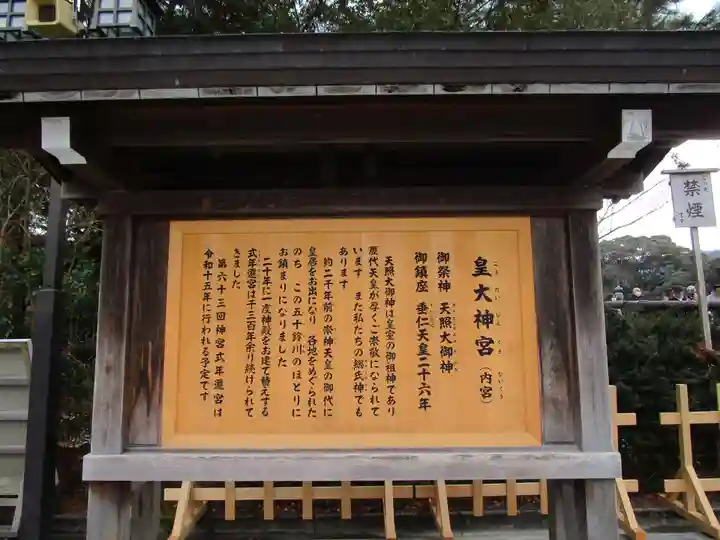 皇大神宮（内宮）
こうたいじんぐう ないくう
御祭神 天照大御神
御鎮座 垂仁天皇二十六年
天照大御神は皇室の御祖神であり
歴代天皇が厚くご崇敬になられて
います また私たちの総氏神でも
あります
約二千年前の崇神天皇の御代に
皇居をお出になり 各地をめぐられた
のち この五十鈴川のほとりに
お鎮まりになりました
二十年に一度神殿をお建て替えする
式年遷宮は千三百年余り続けられて
きました
第六十三回神宮式年遷宮は
令和十五年に行われる予定です
禁煙